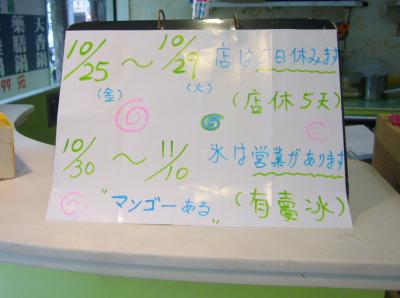 10/25 ～ 10/29 店は5日休みます
(金) (火) (店休5天)
10/30 ～ 11/10 氷は営業があります
"マンゴーある" (有賣冰)
大香鍋
藥膳鍋
99元